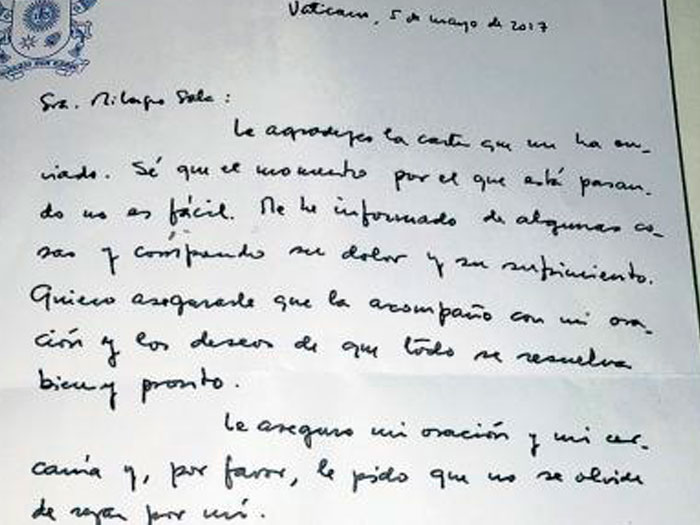 Vaticano, 5 de mayo de 2017
Sra. Milagro Sala :
Le agradezco la carta que me ha en-
viado. Sé que el momento por el que está pasan-
do no es fácil. Me he informado de algunas co-
sas y comprendo su dolor y su sufrimiento.
Quiero asegurarle que la acompaño con mi ora-
ción y los deseos de que todo se resuelva
bien y pronto.
Le aseguro mi oración y mi cer-
canía y, por favor, le pido que no se olvide
de rezar por mí.